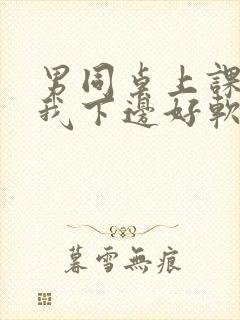 男同桌上課
我下邊好軟
暮雪無痕